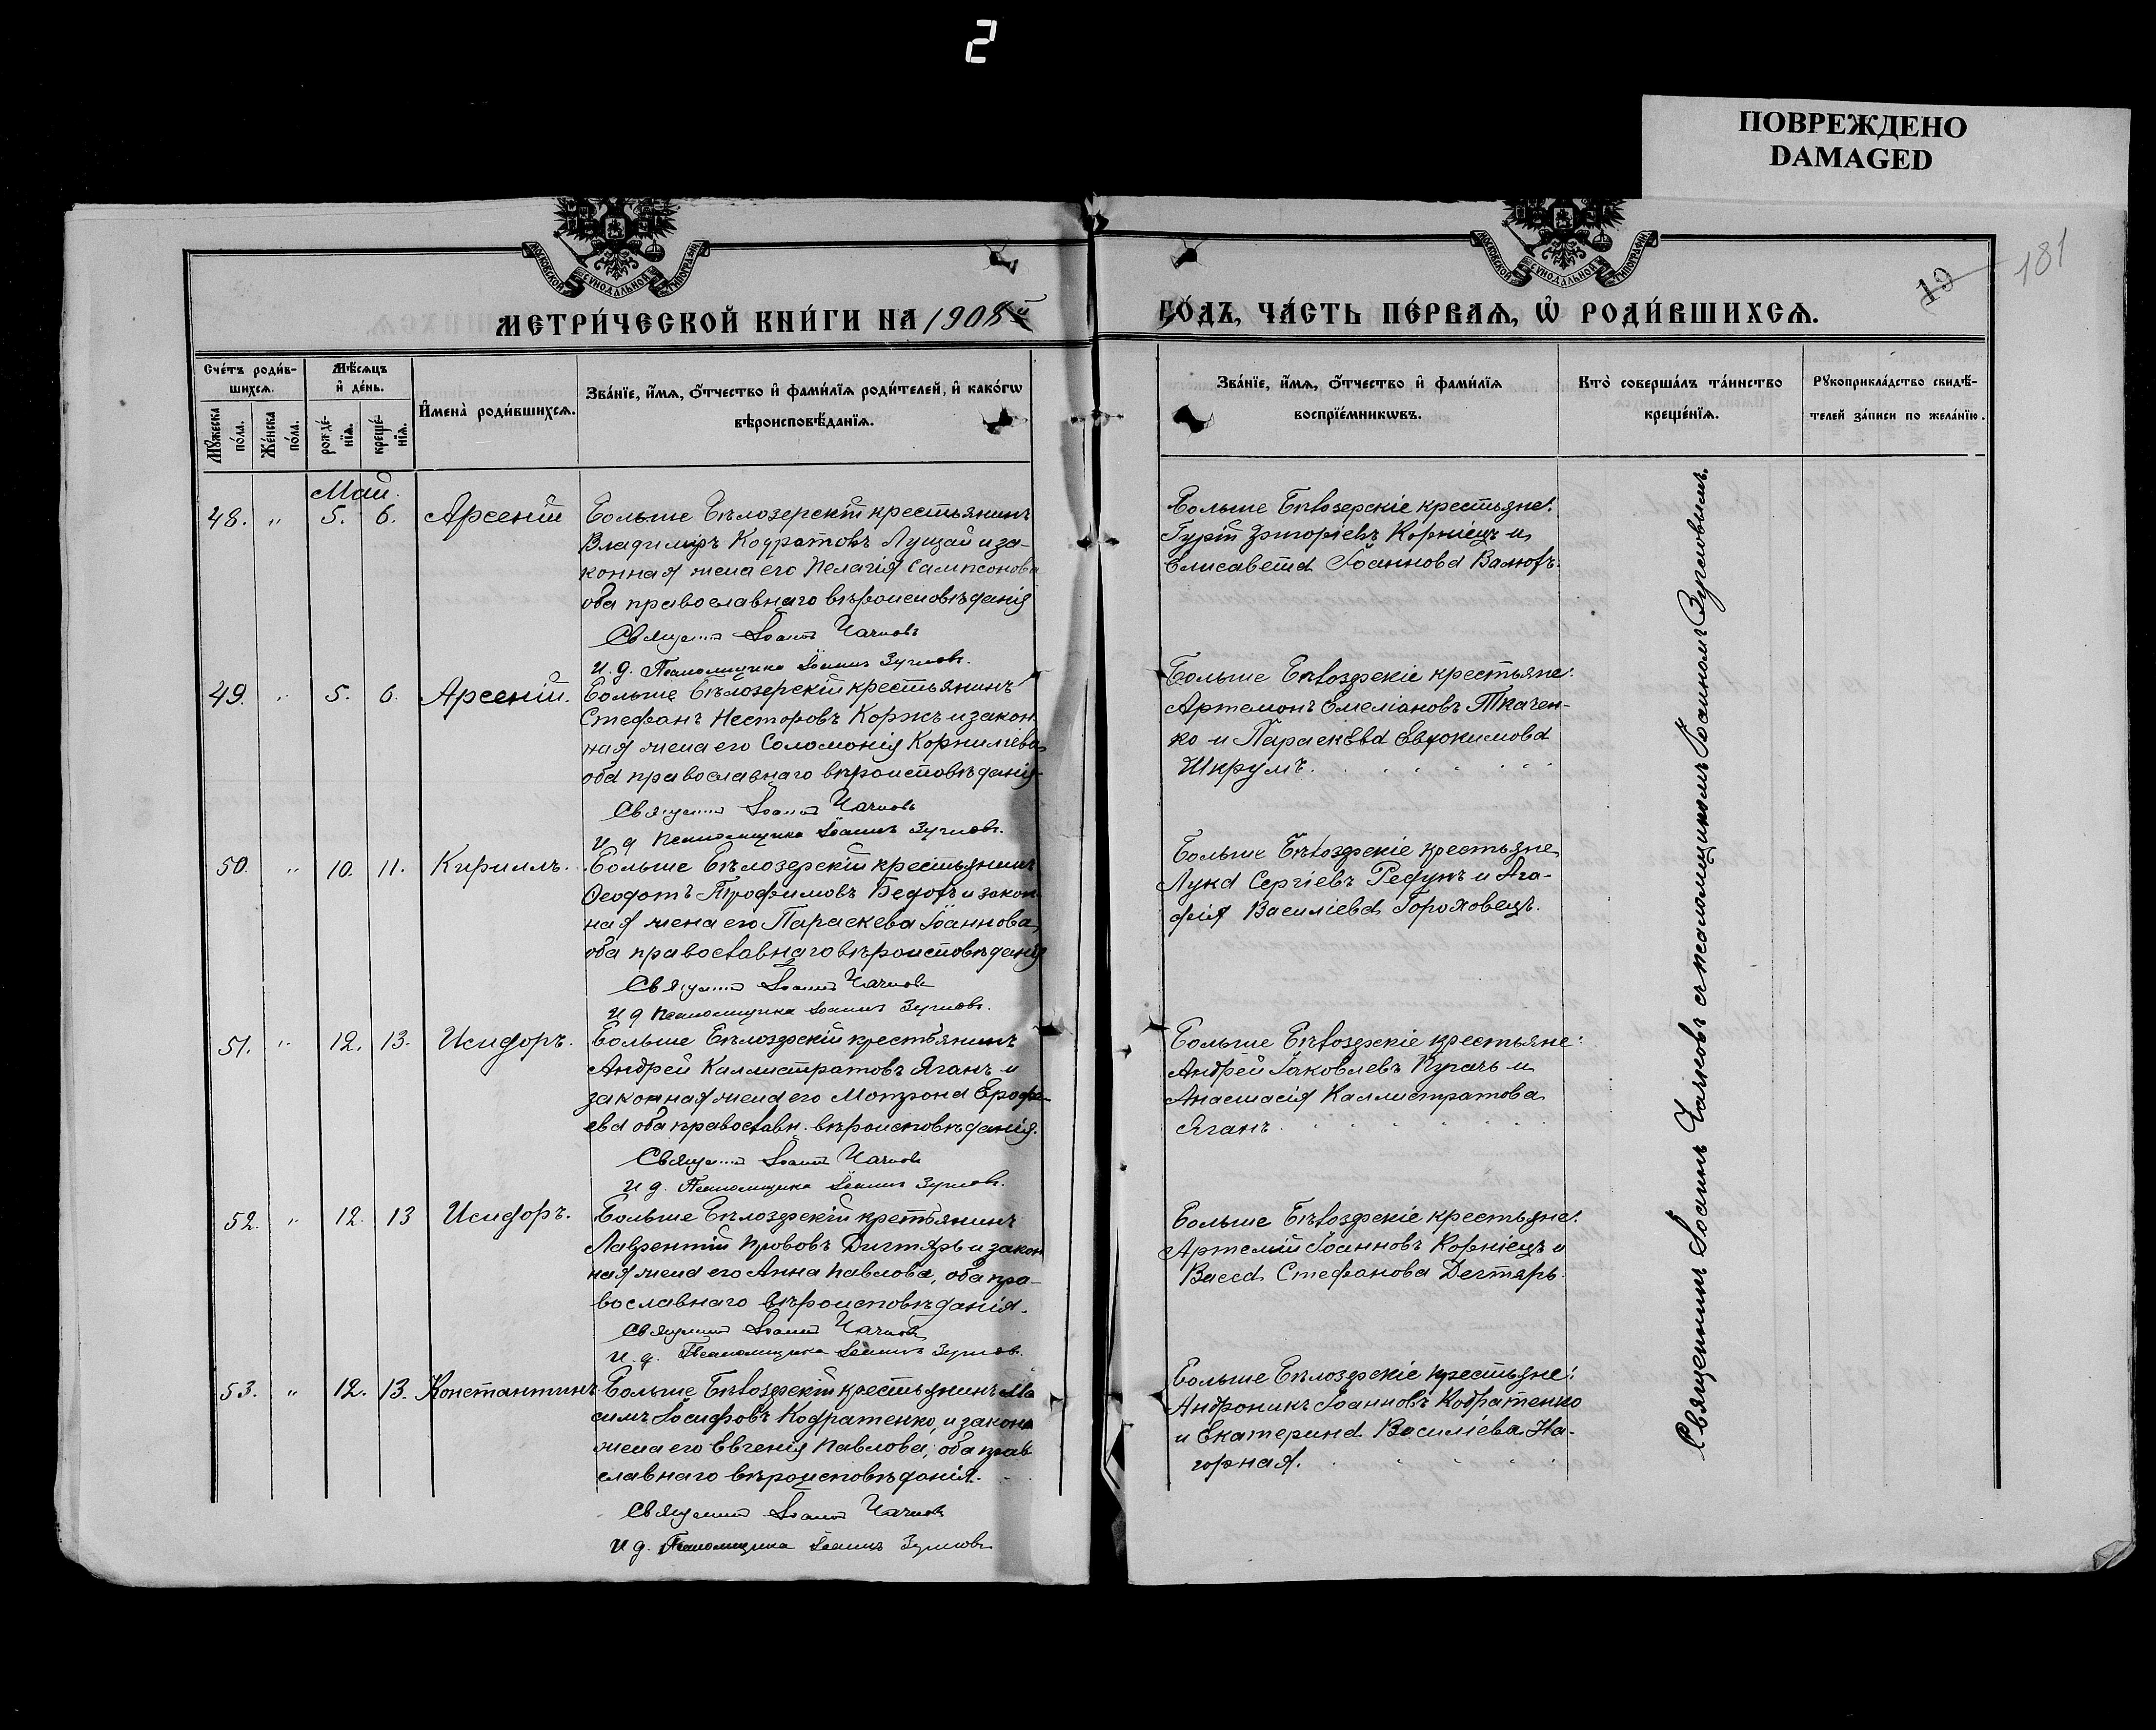 2
ПОВРЕЖДЕНО
DAMAGED
МОСКОВСКОЙ СУНОДАЛЬНОЙ ТИПОГРАФІИ
МОСКОВСКОЙ СУНОДАЛЬНОЙ ТИПОГРАФІИ
19 181
МЕТРИ́ЧЕСКОЙ КНИ́ГИ НА 1908й
ГО́ДЪ, ЧА́СТЬ ПЕ́РВАѦ, Ѡ҆ РОДИ́ВШИХСѦ.
Сче́тъ роди́в-
шихсѧ.
Мꙋ́жеска по́ла.
Же́нска по́ла.
Мѣ́сѧцъ
и҆ де́нь.
рожде́-нїѧ.
креще́-нїѧ.
И҆мена̀ роди́вшихсѧ.
Зва́нїе, и҆́мѧ, ѻ҆́тчество и҆ фами́лїѧ роди́телей, и҆ како́гѡ
вѣроисповѣ́данїѧ.
Зва́нїе, и҆́мѧ, ѻ҆́тчество и҆ фами́лїѧ
воспрїе́мникѡвъ.
Кто̀ соверша́лъ та́инство
креще́нїѧ.
Рꙋкоприкла́дство свидѣ́-
телей за́писи по жела́нїю.
Май.
48. " 5. 6. Арсеній
Больше Бѣлозерскій крестьянинъ
Владиміръ Кодратовъ Лущай и за-
конная жена его Пелагія Сампсонова
оба православнаго вѣроисповѣданія
Священ Іоаннъ Чачковъ
И. д. Псаломщика Іоаннъ
Больше Бѣлозерскіе крестьяне:
Гурій Григоріевъ Корніецъ и
Елисавета Іоаннова
49. " 5. 6. Арсеній.
Больше Бѣлозерскій крестьянинъ
Стефанъ Несторовъ Коржъ и закон-
ная жена его Соломонія Корниліева
оба православнаго вѣроисповѣданія
Священ Іоаннъ Чачковъ
И д Псаломщика Іоаннъ
Больше Бѣлозерскіе крестьяне:
Артемонъ Емеліановъ Ткачен-
ко и Параскева Евдокимова
Шкрумъ.
50. " 10. 11. Кириллъ.
Больше Бѣлозерскій крестьянинъ
Ѳеодотъ Трофимовъ и закон-
ная жена его Параскева Іоаннова,
оба православнаго вѣроисповѣданія
Священ Іоаннъ Чачковъ
И д Псаломщика Іоаннъ
Больше Бѣлозерскіе крестьяне
Лука Сергіевъ Редунъ и Ага-
фія Василіева Гороховецъ.
51. " 12. 13. Исидоръ.
Больше Бѣлозерскій крестьянинъ
Андрей Каллистратовъ Яганъ и
законная жена его Матрона Ерофе-
ева оба православн. вѣроисповѣданія.
Священ Іоаннъ Чачковъ
И д. Псаломщика Іоаннъ
Больше Бѣлозерскіе крестьяне:
Андрей Іаковлевъ Пугачъ и
Анастасія Каллистратова
Яганъ.
52. " 12. 13 Исидоръ.
Больше Бѣлозерскій крестьянинъ
Лаврентій Прововъ Дигтярь и закон
ная жена его Анна Павлова, оба пра-
вославнаго вѣроисповѣданія.
Священ Іоаннъ Чачковъ
И. д. Псаломщика Іоаннъ
Больше Бѣлозерскіе крестьяне:
Артемій Іоанновъ Корніецъ и
Васса Стефанова Дегтярь.
53. " 12. 13. Константинъ
Больше Бѣлозерскій крестьянинъ
Іосифовъ Кодратенко, и законн
жена его Евгенія Павлова; оба прав
славнаго вѣроисповѣданія.
Священ Іоаннъ Чачковъ
И д. Псаломщика Іоаннъ
Больше Бѣлозерскіе крестьяне:
Андроникъ Іоанновъ Кодратенко
и Екатерина Василіева На-
горная.
Священникъ Іоаннъ Чачковъ съ псаломщикомъ Іоанномъ